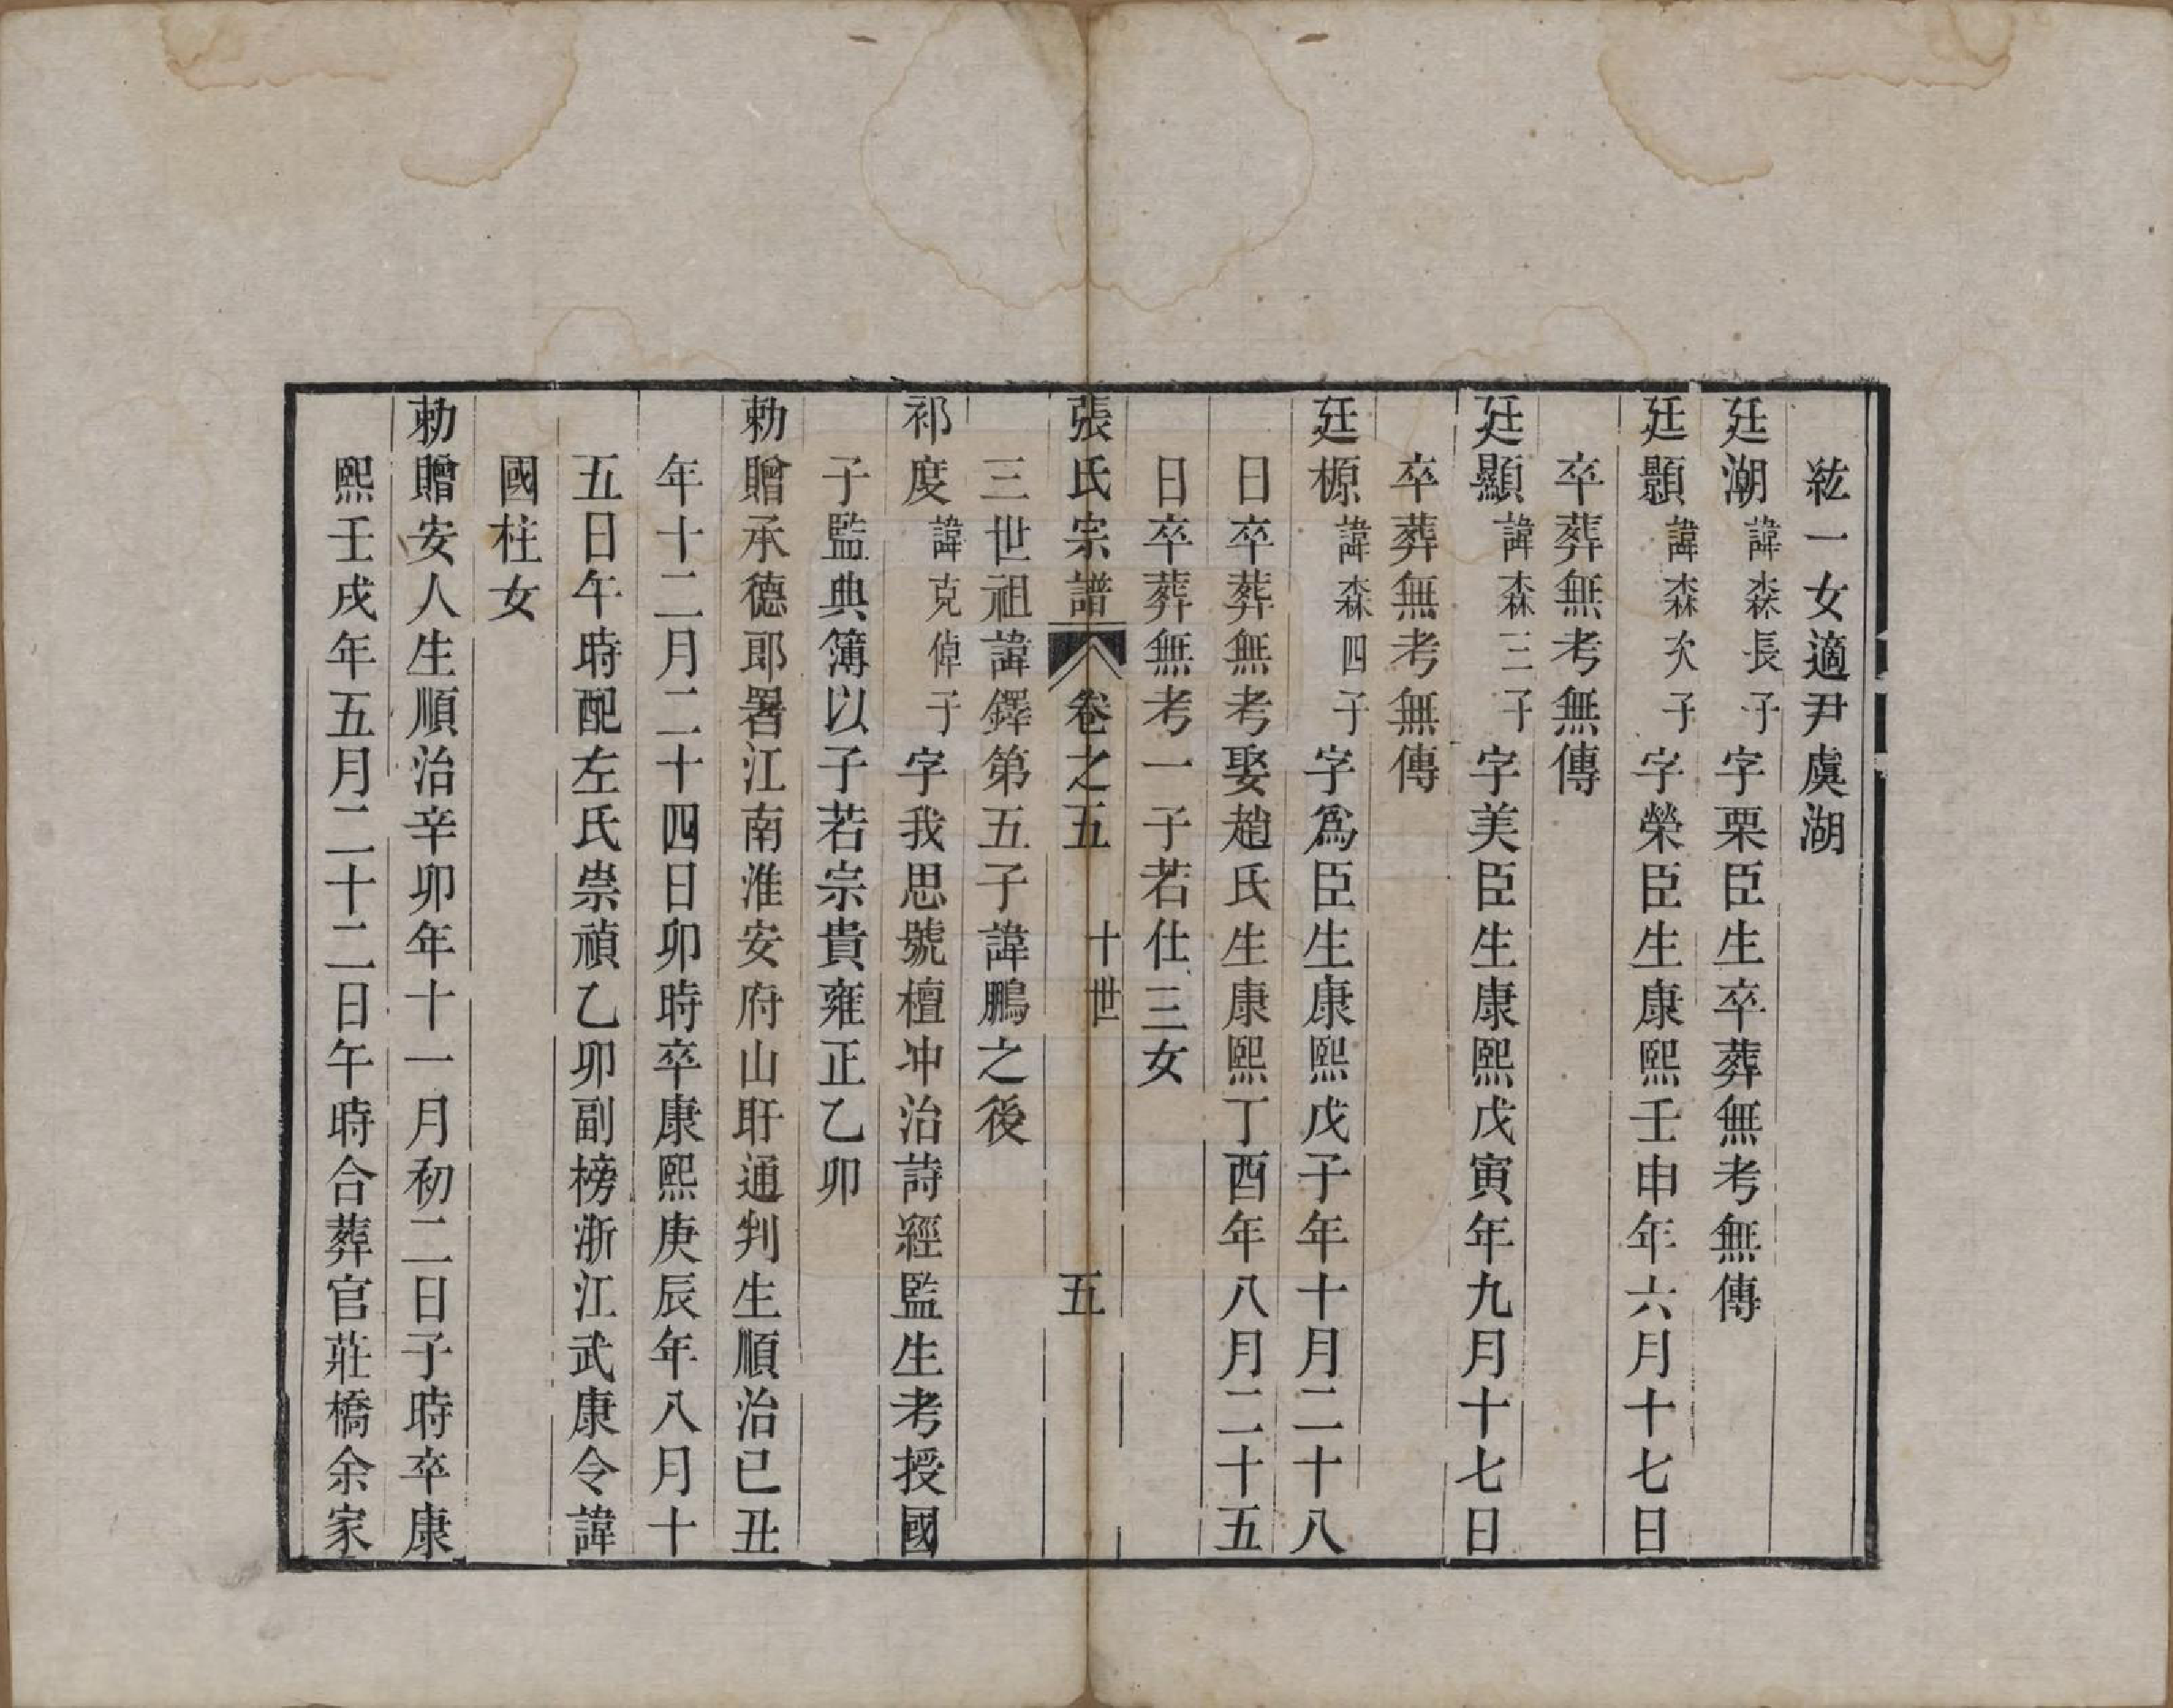 紘一女適尹虞湖
廷潮諱森長子字栗臣生卒葬無考無傳
廷顥諱森次子字榮臣生康熙壬申年六月十七日
卒葬無考無傳
廷顯諱森三子字美臣生康熙戊寅年九月十七日
卒葬無考無傳
廷榞諱森四子字爲臣生康熙戊子年十月二十八
日卒葬無考娶趙氏生康熙丁酉年八月二十五
日卒葬無考一子若仕三女
張氏宗譜 卷之五 十世 五
三世祖諱鐸第五子諱鵬之後
祁度諱克倬子字我思號檀冲治詩經監生考授國
子監典簿以子若宗貴雍正乙卯
勅贈承德郎署江南淮安府山盱通判生順治己丑
年十二月二十四日卯時卒康熙庚辰年八月十
五日午時配左氏崇禎乙卯副榜浙江武康令諱
國柱女
勅贈安人生順治辛卯年十一月初二日子時卒康
熙壬戌年五月二十二日午時合葬官莊橋余家